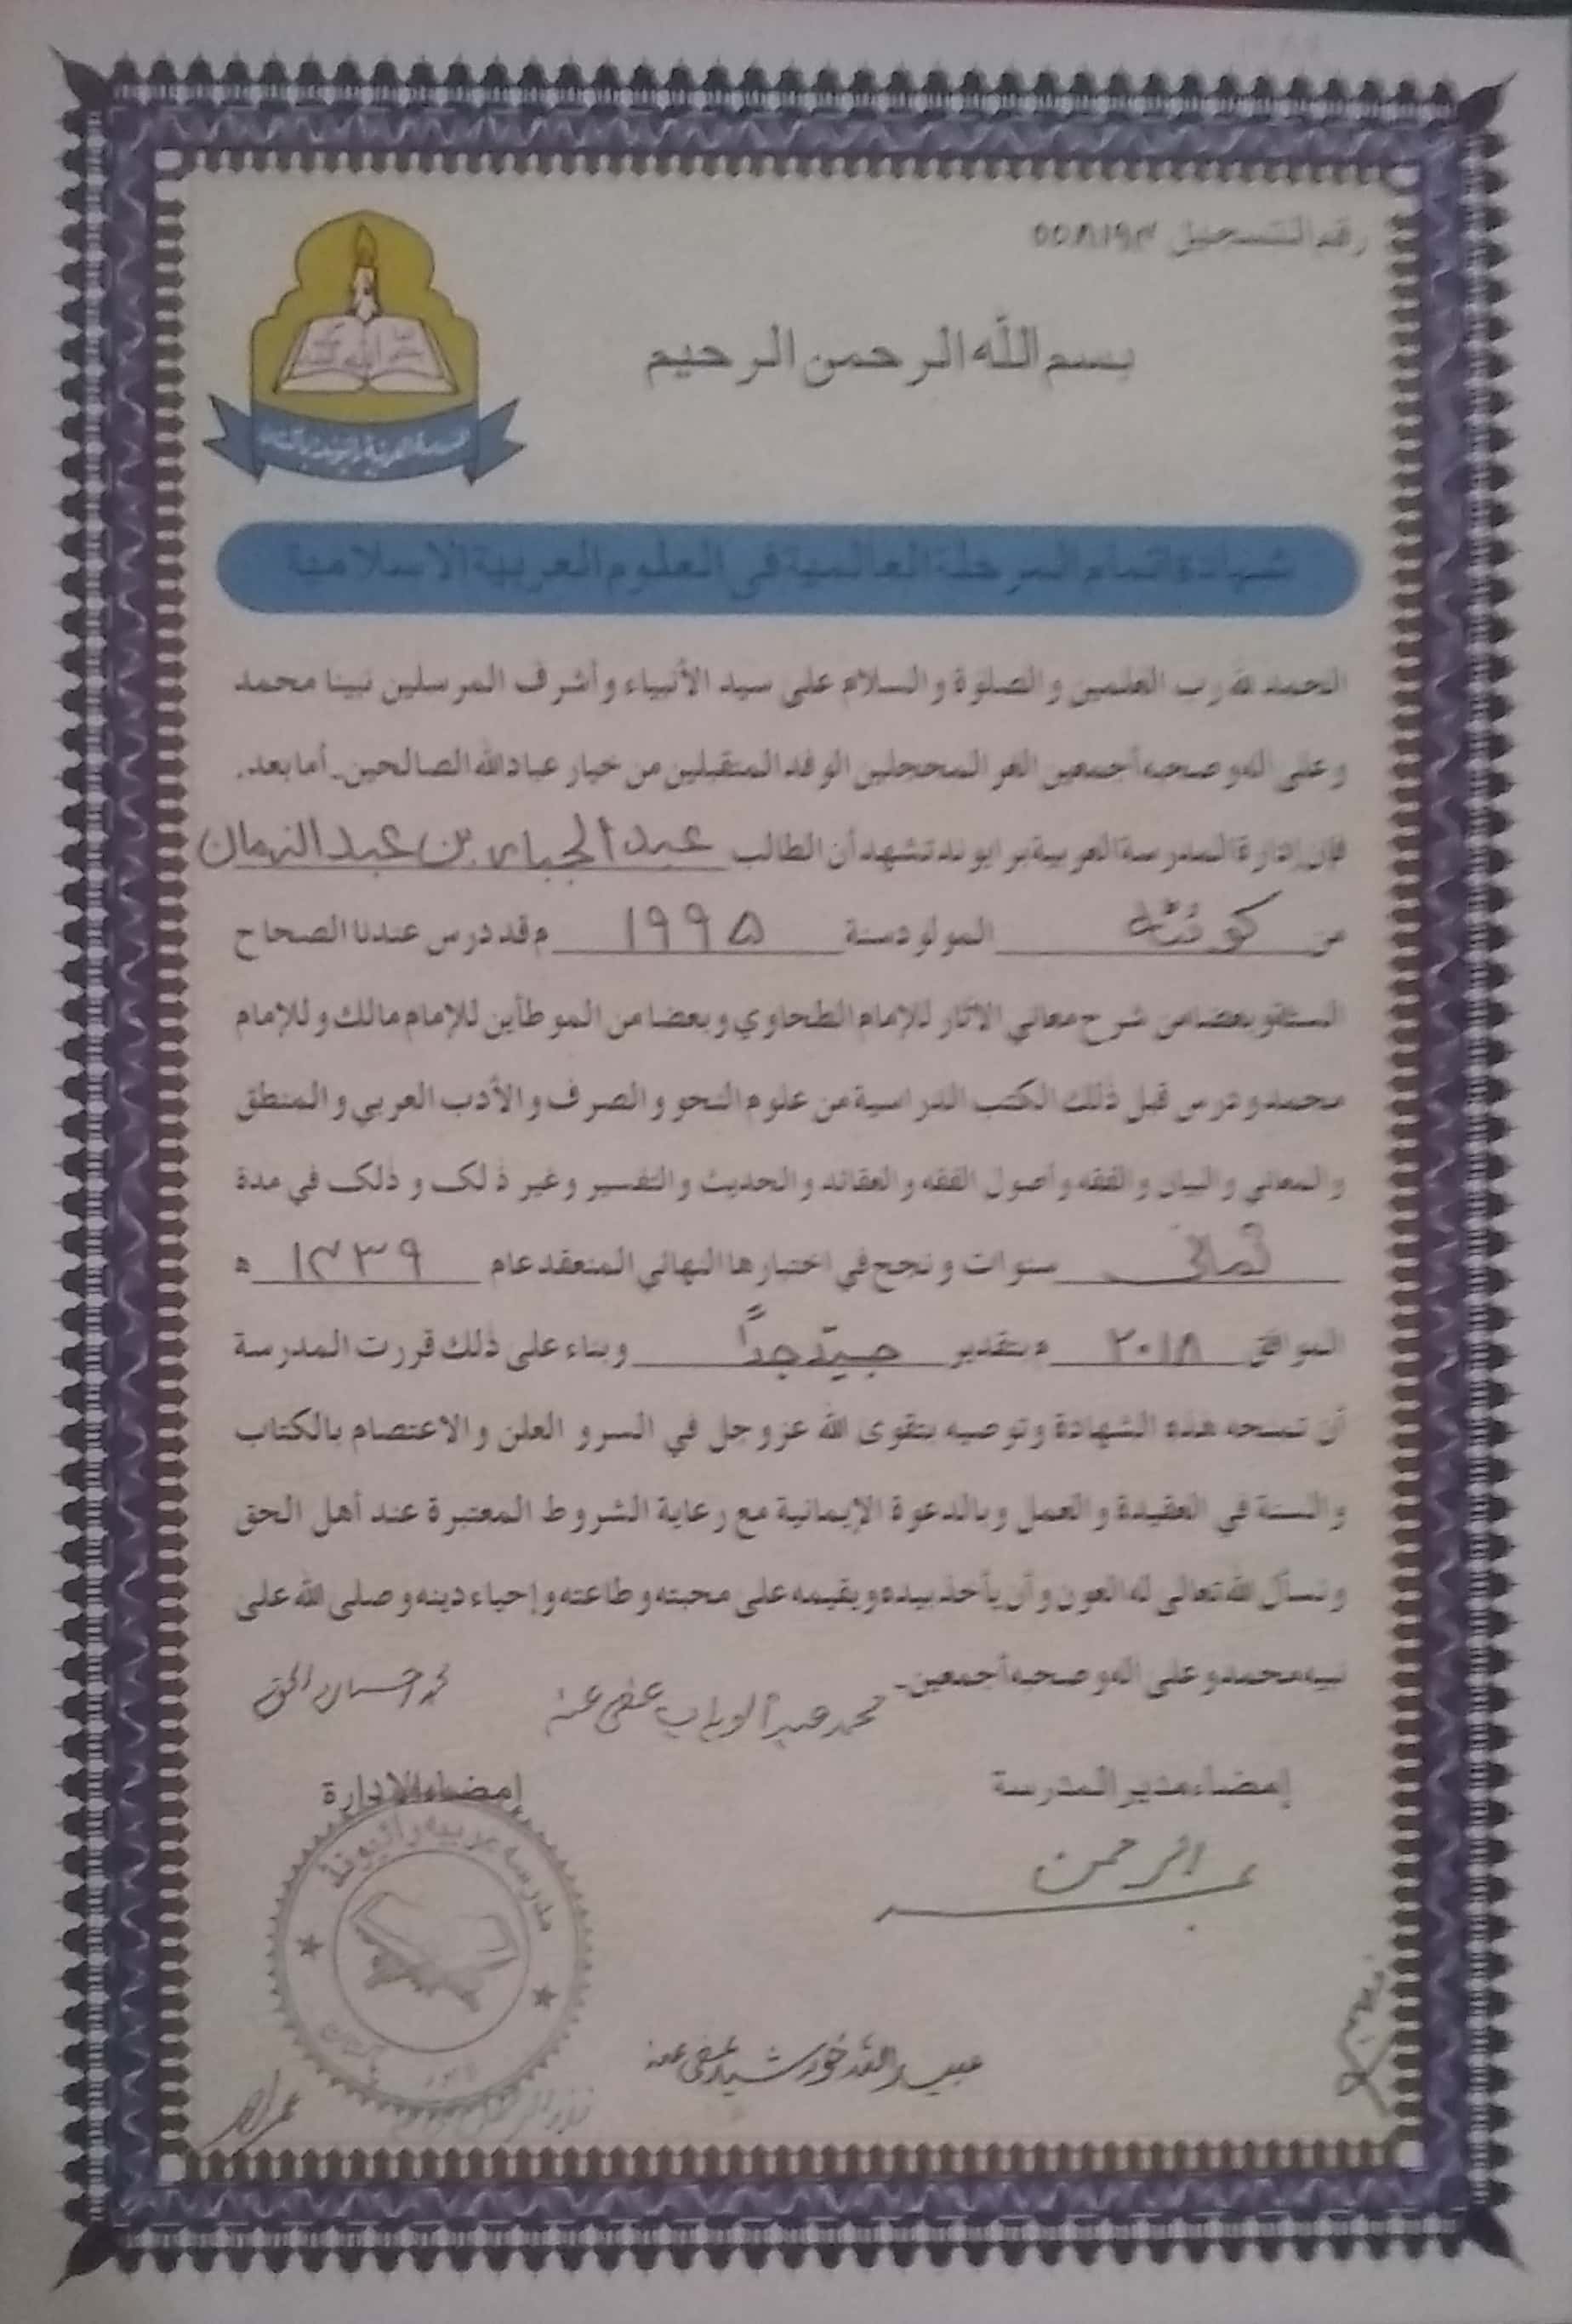 رقم التسجيل ٥٥٨١٩٣
بسم الله الرحمن الرحيم
المدرسة العربية برايوند باكستان
شهادة اتمام المرحلة العالمية فى العلوم العربية الاسلامية
الحمد لله رب العلمين والصلوة والسلام على سيد الأنبياء وأشرف المرسلين نبينا محمد
وعلى اله وصحبه أجمعين الغر المحجلين الوفد المتقبلين من خيار عباد الله الصالحين۔ أما بعد.
فإن إدارة المدرسة العربية برايوند تشهد أن الطالب عبد الجبار بن عبد
من كوئٹہ المولود سنة ١٩٩٥ م قد درس عندنا الصحاح
الستة وبعضا من شرح معاني الآثار للإمام الطحاوي وبعضا من الموطأين للإمام مالك وللإمام
محمد ودرس قبل ذلك الكتب الدراسية من علوم النحو والصرف والأدب العربي والمنطق
والمعاني والبيان والفقه وأصول الفقه والعقائد والحديث والتفسير وغير ذلک وذلک في مدة
ثماني سنوات ونجح في اختبارها النهائي المنعقد عام ١٤٣٩ ه
الموافق ٢٠١٨ م بتقدير جيّد جدًا وبناء على ذلك قررت المدرسة
أن تمنحه هذه الشهادة وتوصيه بتقوى الله عزوجل في السر و العلن والاعتصام بالكتاب
والسنة في العقيدة والعمل وبالدعوة الإيمانية مع رعاية الشروط المعتبرة عند أهل الحق
ونسأل الله تعالى له العون وأن يأخذ بيده ويقيمه على محبته وطاعته وإحياء دينه وصلى الله على
نبيه محمد وعلى اله وصحبه أجمعين۔
محمد عبد الوہاب عفی عنہ
محمد احسان الحق
إمضاء مدير المدرسة
إمضاء الإدارة
الرحمن
مدرسه عربيه رائيونڈ
لاہور پاکستان
عبید اللہ خورشید عفی عنہ